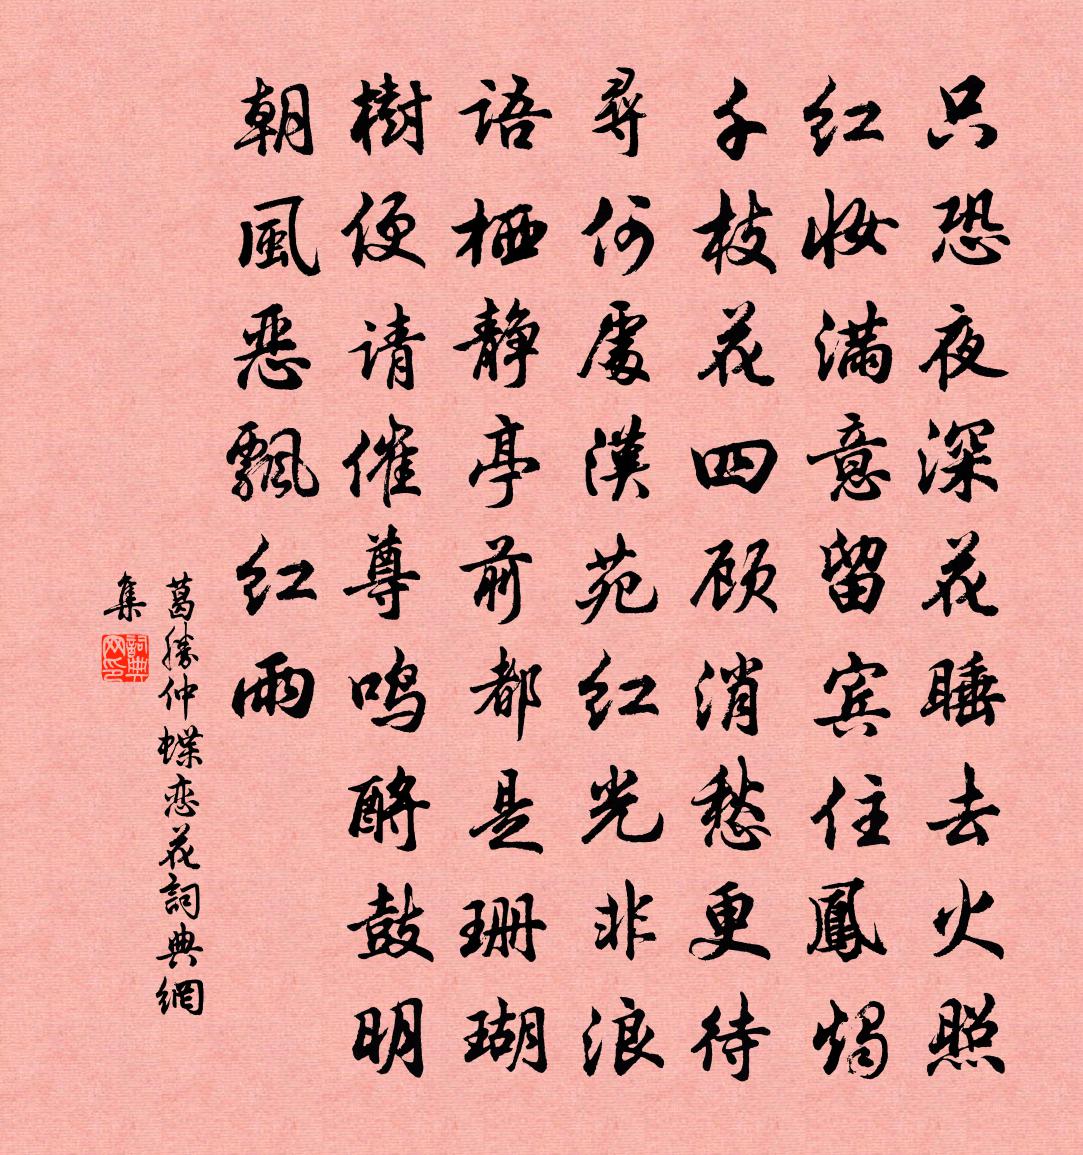 只恐夜深花睡去火照
红妆满意留宾住鳳燭
千枝花四顾消愁更待
尋何處漢苑红光非浪
语栖静亭前都是珊瑚
樹便请催尊鸣酹鼓明
朝風恶飄红雨
葛勝仲蝶恋花詞典網
集
詞典网印